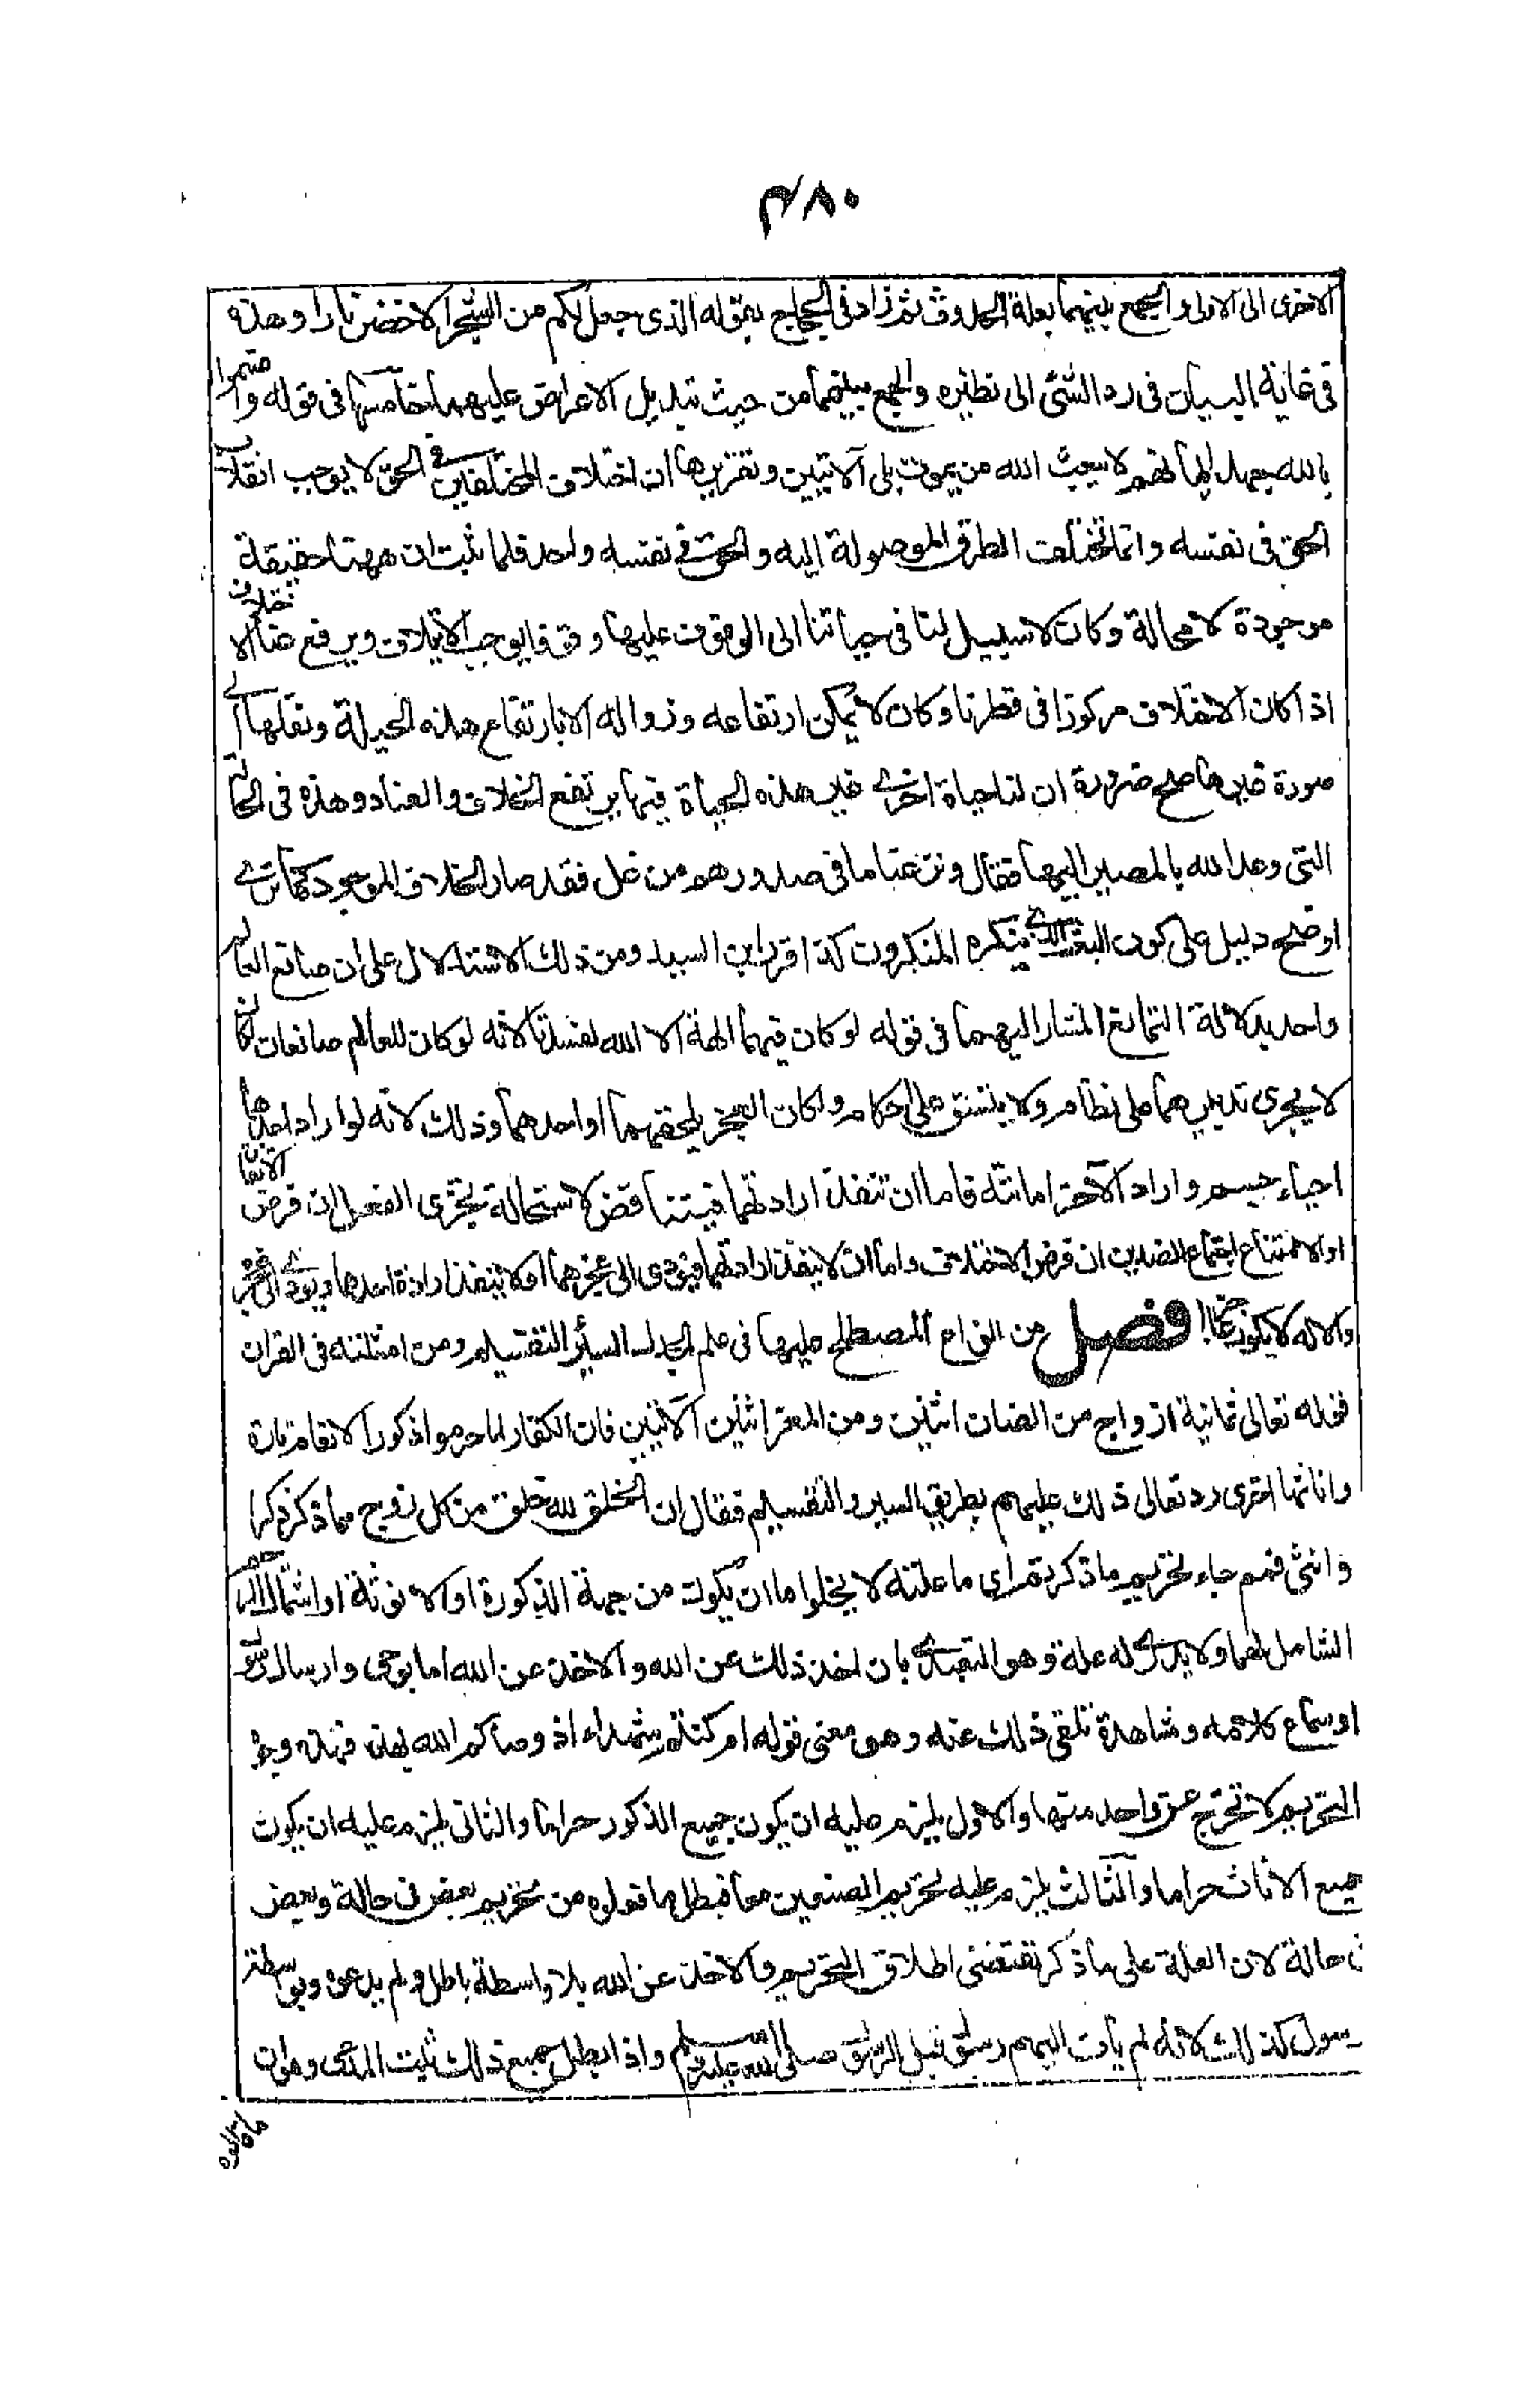 ٤٨٠
الاخرى الى الاولى والجمع بينهما بعلة الحدوث ثم زاد فى الحجاج بقوله الذى جعل لكم من الشجر الاخضر نارا وهذه
فى غاية البيان فى رد الشئ الى نظيره والجمع بينهما من حيث تبديل الاعراض عليهما خامسها فى قوله واقسموا
بالله جهد ايمانهم لا يبعث الله من يموت بلى الآيتين وتقريرها ان اختلاف المختلفين فى الحق لا يوجب انقلاب
الحق فى نفسه وانما تختلف الطرق الموصولة اليه والحق فى نفسه واحد فلما ثبت ان ههنا حقيقة
موجودة لا محالة وكان لا سبيل لنا فى حياتنا الى الوقوف عليها وقوفا يوجب الايتلاف ويرفع عنا الاختلاف
اذ كان الاختلاف مركوزا فى فطرنا وكان لا يمكن ارتفاعه وزواله الا بارتفاع هذه الجبلة ونقلها الى
صورة غيرها صح ضرورة ان لنا حياة اخرى غير هذه الحياة فيها يرتفع الخلاف والعناد وهذه فى الحالة
التى وعد الله بالمصير اليها فقال ونزعنا ما فى صدورهم من غل فقد صار الخلاف الموجود كما ترى
اوضح دليل على كون البعث الذى ينكره المنكرون كذا قرر ابن السيد ومن ذلك الاستدلال على ان صانع العالم
واحد بدلالة التمانع المشار اليها فى قوله لو كان فيهما الهة الا الله لفسدتا لانه لو كان للعالم صانعان لكان
لا يجرى تدبيرهما على نظام ولا يتسق على احكام ولكان العجز يلحقهما او احدهما وذلك لانه لو اراد احدهما
احياء جسم واراد الآخر اماتته فاما ان تنفذ ارادتهما فيتناقض لاستحالة تجزى الفعل ان فرض الاتفاق
او لامتناع اجتماع الضدين ان فرض الاختلاف واما ان لا ينفذ ارادتهما فيؤدى الى عجزهما او لا ينفذ ارادة احدهما ويؤدى الى عجزه
والاله لا يكون عاجزا فصل من انواع المصطلح عليها فى علم الجدل السبر والتقسيم ومن امثلته فى القران
قوله تعالى ثمانية ازواج من الضان اثنين ومن المعز اثنين الآيتين فان الكفار لما حرموا ذكور الانعام تارة
واناثها اخرى رد تعالى ذلك عليهم بطريق السبر والتقسيم فقال ان الخلق لله خلق من كل زوج مما ذكر ذكرا
وانثى فمم جاء تحريم ما ذكرتم اى ما علته لا يخلو اما ان يكون من جهة الذكورة او الانوثة او اشتمال الرحم
الشامل لهما او لا يدرى له علة وهو التعبدى بان اخذ ذلك عن الله والاخذ عن الله اما بوحى وارسال رسول
او سماع كلامه ومشاهدة تلقى ذلك عنه وهو معنى قوله ام كنتم شهداء اذ وصاكم الله بهذا فهذه وجوه
التحريم لا تخرج عن واحد منها والاول يلزم عليه ان يكون جميع الذكور حراما والثانى يلزم عليه ان يكون
جميع الاناث حراما والثالث يلزم عليه تحريم الصنفين معا فبطل ما فعلوه من تحريم بعض فى حالة وبعض
فى حالة لان العلة على ما ذكر تقتضى اطلاق التحريم والاخذ عن الله بلا واسطة باطل ولم يدعوه وبواسطة
رسول كذلك لانه لم يأت اليهم رسول قبل النبى صلى الله عليه وسلم واذا بطل جميع ذلك ثبت المدعى وهو ان
ما قالوه